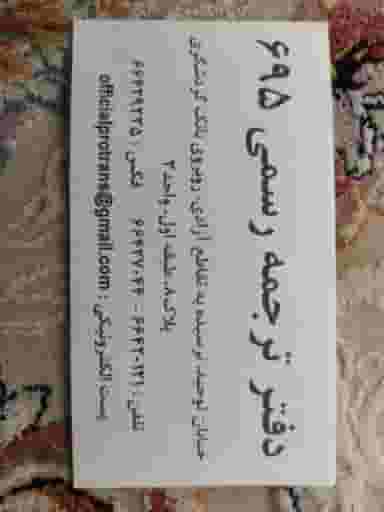 دفتر ترجمه رسمی ۶۹۵
خیابان توحید، نرسیده به تقاطع آزادی، روبروی بانک گردشگری
پلاک ۸، طبقه اول، واحد ۲
تلفن : ۶۶۴۲۰۱۲۱ - ۶۶۴۲۷۰۴۴ فکس : ۶۶۴۲۹۲۲۵
پست الکترونیکی : officialprotrans@gmail.com